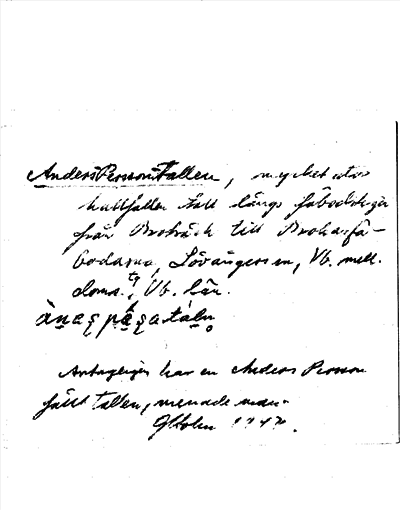 AndersPerssonTallen, mycket stor
kullfallen tall längs fäbodstigen
från Broträsk till Brokärsfä-
bodarna, Lövångers sn, Vb. mell.
doms. tg, Vb. län.
Antagligen har en Anders Persson
fällt tallen, menade man.
GHolm 1947.